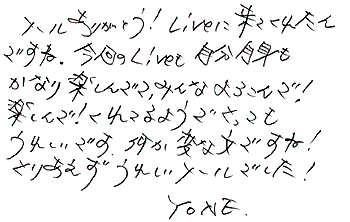 メールありがとう！Liveに来てくれたん
ですね。今回のLiveも自分自身も
かなり楽しんで、みんなよろこんで！
楽しんで！くれてるようでとっても
うれしいです。何か変な文ですね！
とりあえずうれしいメールでした！
YONE.